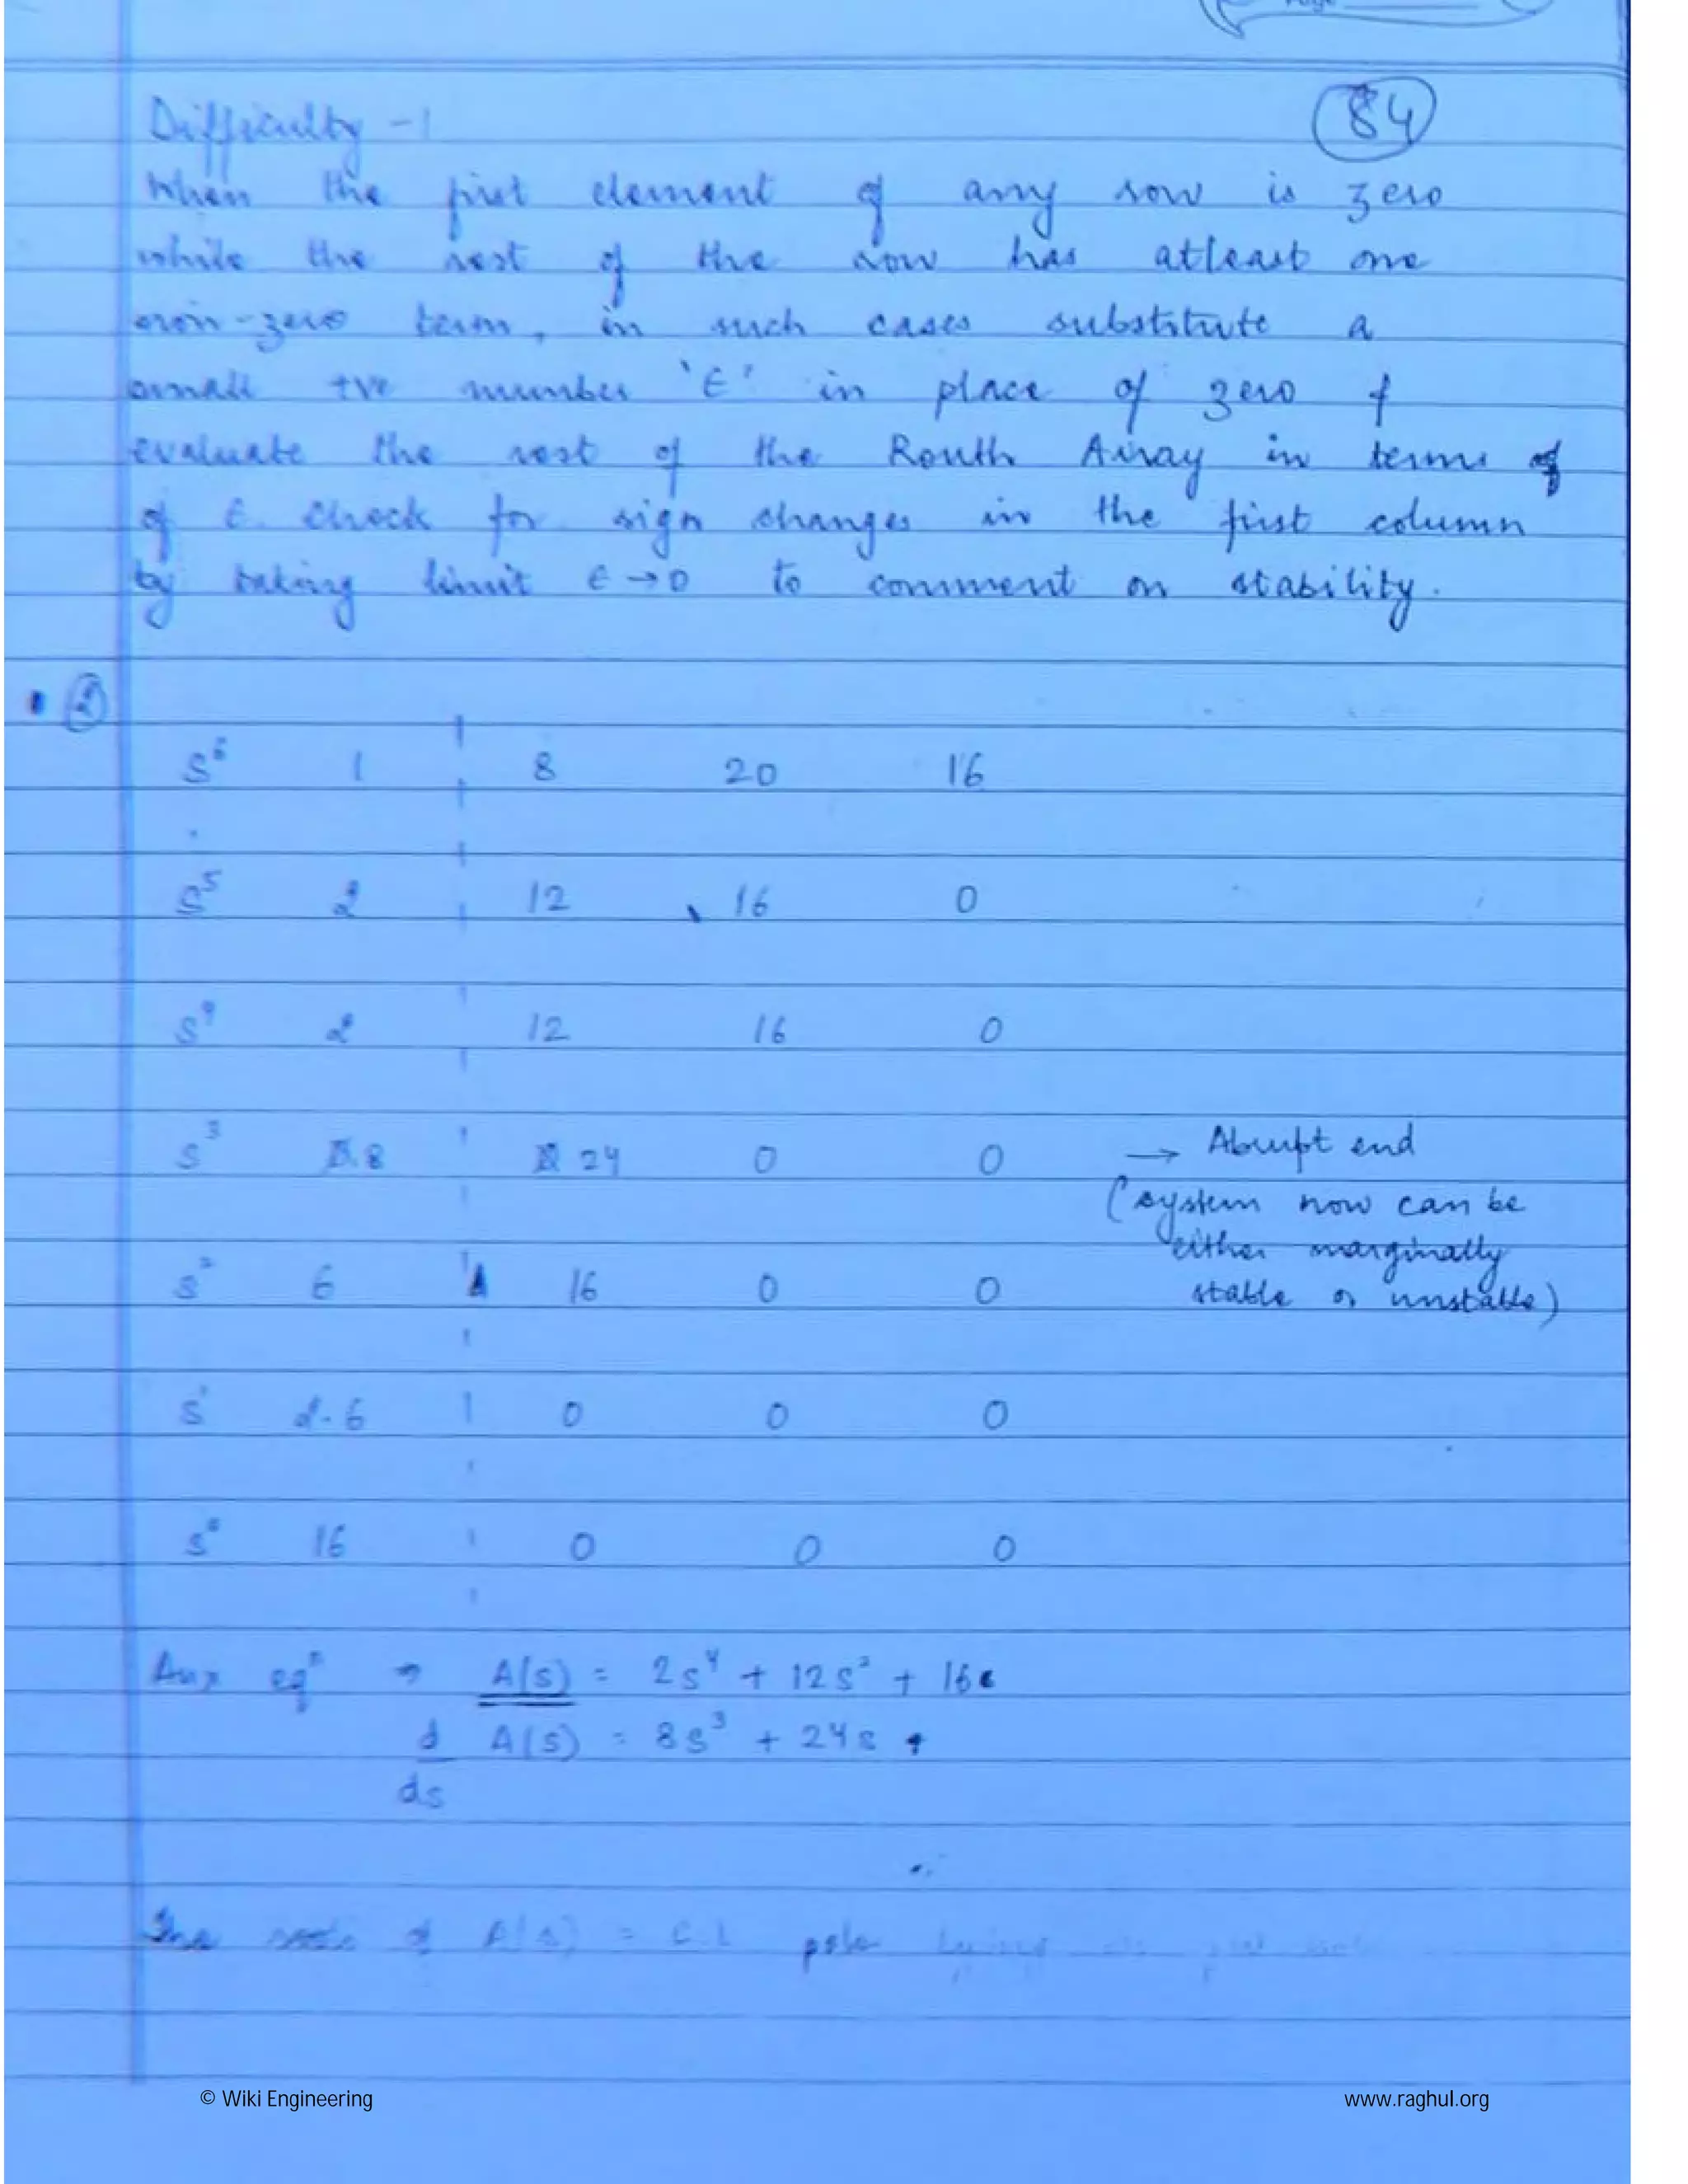 Page
84
Difficulty -1
When the first element of any row is zero
while the rest of the row has atleast one
non-zero term, in such cases substitute a
small +ve number 'ϵ' in place of zero &
evaluate the rest of the Routh Array in terms of
of ϵ. Check for sign changes in the first column
by taking limit ϵ→0 to comment on stability.
2
S⁶ 1 8 20 16
S⁵ 2 12 16 0
S⁴ 2 12 16 0
S³ 8 24 0 0 → Abrupt end
(system now can be
either marginally
S² 6 16 0 0 stable or unstable)
S¹ 2.6 0 0 0
S⁰ 16 0 0 0
Aux eqⁿ → A(s) = 2s⁴ + 12s² + 16
d A(s) = 8s³ + 24s
ds
The roots of A(s) = C.L pole lying
© Wiki Engineering www.raghul.org